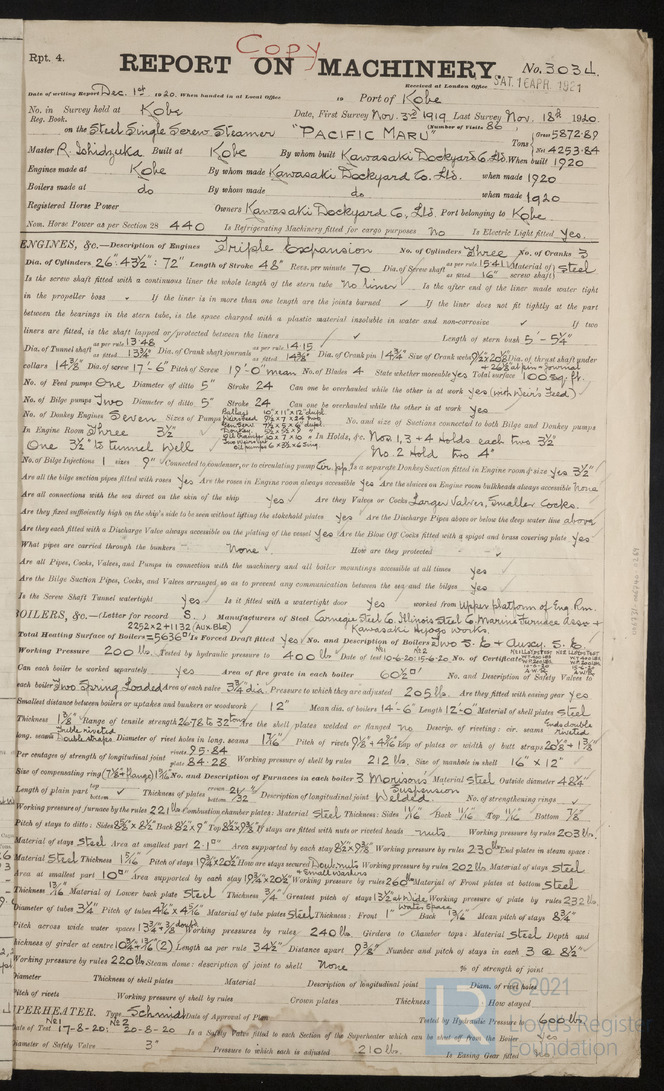 Copy
Rpt. 4.
REPORT ON MACHINERY. No. 3034.
Received at London Office SAT. 16 APR. 1921
Date of writing Report Dec. 1st 1920. When handed in at Local Office 19 Port of Kobe
No. in Survey held at Kobe Date, First Survey Nov. 3rd 1919. Last Survey Nov. 18th 1920.
Reg. Book. Number of Visits 86
on the Steel Single Screw Steamer "PACIFIC MARU" Tons Gross 5872.89 Net 4253.84
Master R. Ishidzuka Built at Kobe By whom built Kawasaki Dockyard Co. Ltd. When built 1920
Engines made at Kobe By whom made Kawasaki Dockyard Co. Ltd. when made 1920
Boilers made at do By whom made do when made 1920
Registered Horse Power Owners Kawasaki Dockyard Co, Ltd. Port belonging to Kobe.
Nom. Horse Power as per Section 28 440 Is Refrigerating Machinery fitted for cargo purposes No Is Electric Light fitted Yes.
ENGINES, &c.—Description of Engines Triple Expansion No. of Cylinders Three No. of Cranks 3
Dia. of Cylinders 26": 43½": 72" Length of Stroke 48" Revs. per minute 70 Dia. of Screw shaft as per rule 15.41 as fitted 16" Material of screw shaft Steel
Is the screw shaft fitted with a continuous liner the whole length of the stern tube No liner Is the after end of the liner made water tight
in the propeller boss If the liner is in more than one length are the joints burned If the liner does not fit tightly at the part
between the bearings in the stern tube, is the space charged with a plastic material insoluble in water and non-corrosive If two
liners are fitted, is the shaft lapped or protected between the liners Length of stern bush 5'-5¼"
Dia. of Tunnel shaft as per rule 13.48 as fitted 13¾" Dia. of Crank shaft journals as per rule 14.15 as fitted 14⅜" Dia. of Crank pin 14¾" Size of Crank webs Dia. of thrust shaft under
collars 14⅜" Dia. of screw 17'-6" Pitch of Screw 19'-0" mean No. of Blades 4 State whether moveable yes Total surface 100 sq. ft.
No. of Feed pumps One Diameter of ditto 5" Stroke 24 Can one be overhauled while the other is at work yes (with Weir's Feed)
No. of Bilge pumps Two Diameter of ditto 5" Stroke 24 Can one be overhauled while the other is at work Yes
No. of Donkey Engines Seven Sizes of Pumps No. and size of Suctions connected to both Bilge and Donkey pumps
In Engine Room Three 3½" In Holds, &c. Nos. 1, 3 + 4 Holds each two 3½"
One 3½" to tunnel Well No. 2 Hold two 4"
No. of Bilge Injections 1 sizes 9" Connected to condenser, or to circulating pump Cir. pp. Is a separate Donkey Suction fitted in Engine room & size yes 3½"
Are all the bilge suction pipes fitted with roses yes Are the roses in Engine room always accessible yes Are the sluices on Engine room bulkheads always accessible None
Are all connections with the sea direct on the skin of the ship yes Are they Valves or Cocks Larger Valves, Smaller Cocks.
Are they fixed sufficiently high on the ship's side to be seen without lifting the stokehold plates yes Are the Discharge Pipes above or below the deep water line above
Are they each fitted with a Discharge Valve always accessible on the plating of the vessel yes Are the Blow Off Cocks fitted with a spigot and brass covering plate yes
What pipes are carried through the bunkers None How are they protected -
Are all Pipes, Cocks, Valves, and Pumps in connection with the machinery and all boiler mountings accessible at all times yes
Are the Bilge Suction Pipes, Cocks, and Valves arranged so as to prevent any communication between the sea and the bilges yes
Is the Screw Shaft Tunnel watertight yes Is it fitted with a watertight door yes worked from Upper platform of Eng. Rm.
BOILERS, &c.—(Letter for record S.) Manufacturers of Steel Carnegie Steel Co. Illinois Steel Co. Marine Furnace Assn +
2252x2+1132 (Aux. Blr) Kawasaki Hyogo Works.
Total Heating Surface of Boilers =5636 Is Forced Draft fitted yes No. and Description of Boilers Two S.E. + Auxy. S.E.
Working Pressure 200 lbs. Tested by hydraulic pressure to 400 lbs. Date of test No1 10-6-20: No2 15-6-20 No. of Certificate
Can each boiler be worked separately yes Area of fire grate in each boiler 60½ No. and Description of Safety Valves to
each boiler Two Spring Loaded Area of each valve 3¾ dia. Pressure to which they are adjusted 205 lbs. Are they fitted with easing gear yes
Smallest distance between boilers or uptakes and bunkers or woodwork 12" Mean dia. of boilers 14'-6" Length 12'-0" Material of shell plates Steel
Thickness Range of tensile strength 26.78 to 32 tons Are the shell plates welded or flanged no Descrip. of riveting: cir. seams Ends double riveted
long. seams Double straps Diameter of rivet holes in long. seams 1 7/16" Pitch of rivets Lap of plates or width of butt straps
Per centages of strength of longitudinal joint rivets 95.84 plate 84.28 Working pressure of shell by rules 212 lbs. Size of manhole in shell 16" x 12"
Size of compensating ring No. and Description of Furnaces in each boiler 3 Morisons Suspension Material Steel Outside diameter 48¼"
Length of plain part top bottom Thickness of plates crown bottom 21/32" Description of longitudinal joint Welded. No. of strengthening rings
Working pressure of furnace by the rules 221 lbs Combustion chamber plates: Material Steel Thickness: Sides 11/16" Back 11/16" Top 11/16" Bottom 7/8"
Pitch of stays to ditto: Sides Back 8½" x 9" Top If stays are fitted with nuts or riveted heads nuts. Working pressure by rules 203 lbs.
Material of stays Steel Area at smallest part 2.1 Area supported by each stay Working pressure by rules 230 lbs End plates in steam space:
Material Steel Thickness 1 3/16 Pitch of stays How are stays secured Double nuts + Small washers Working pressure by rules 202 lbs Material of stays Steel
Area at smallest part 10 Area supported by each stay Working pressure by rules 260 lbs Material of Front plates at bottom Steel
Thickness 13/16 Material of Lower back plate Steel Thickness 3/4" Greatest pitch of stays 13½ at Wide Water Space Working pressure of plate by rules 232 lbs.
Diameter of tubes 3¼" Pitch of tubes Material of tube plates Steel Thickness: Front 1" Back 13/16" Mean pitch of stays 8¾"
Pitch across wide water spaces Working pressures by rules 240 lbs. Girders to Chamber tops: Material Steel Depth and
thickness of girder at centre Length as per rule 34½" Distance apart 9⅜" Number and pitch of stays in each 3 @ 8½"
Working pressure by rules 220 lbs Steam dome: description of joint to shell None % of strength of joint
Diameter Thickness of shell plates Material Description of longitudinal joint Diam. of rivet holes
Pitch of rivets Working pressure of shell by rules Crown plates Thickness How stayed
PERHEATER. Type Schmidt Date of Approval of Plan Tested by Hydraulic Pressure to 600 lbs.
Date of Test No1 17-8-20: No2 20-8-20 Is a Safety Valve fitted to each Section of the Superheater which can be shut off from the Boiler Yes
Diameter of Safety Valve 3" Pressure to which each is adjusted 210 lbs. Is Easing Gear fitted
© 2021
Lloyd's Register
Foundation